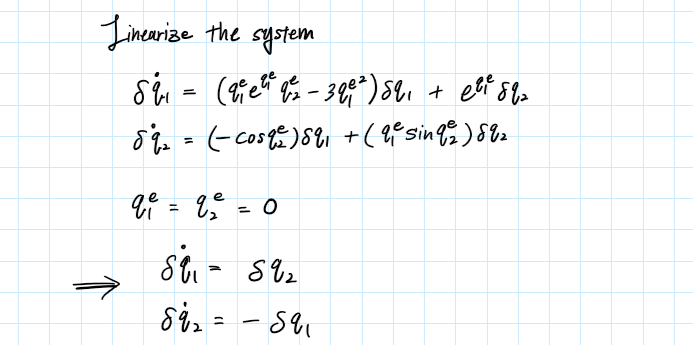 Linearize the system
δq̇₁ = (q₁ᵉe^{q₁ᵉ}q₂ᵉ - 3q₁ᵉ²)δq₁ + e^{q₁ᵉ}δq₂
δq̇₂ = (-cosq₂ᵉ)δq₁ + (q₁ᵉsinq₂ᵉ)δq₂
q₁ᵉ = q₂ᵉ = 0
⟹ δq̇₁ = δq₂
δq̇₂ = - δq₁